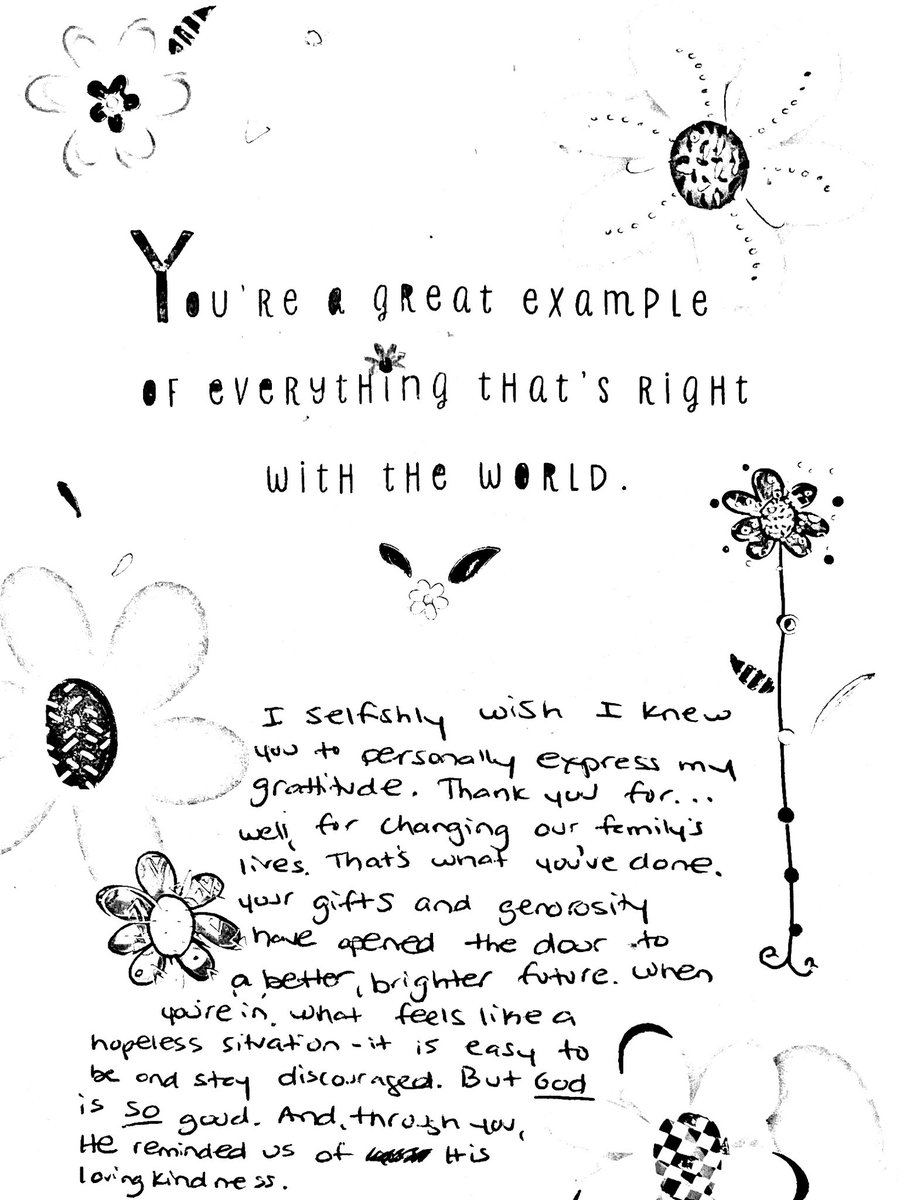 You're a great example
of everything that's right
with the world.
I selfishly wish I knew
you to personally express my
grattitude. Thank you for...
well, for changing our family's
lives. That's what you've done.
your gifts and generosity
have opened the door to
a better, brighter future. When
you're in, what feels like a
hopeless situation - it is easy to
be and stay discouraged. But God
is so good. And, through you,
He reminded us of His
loving kindness.